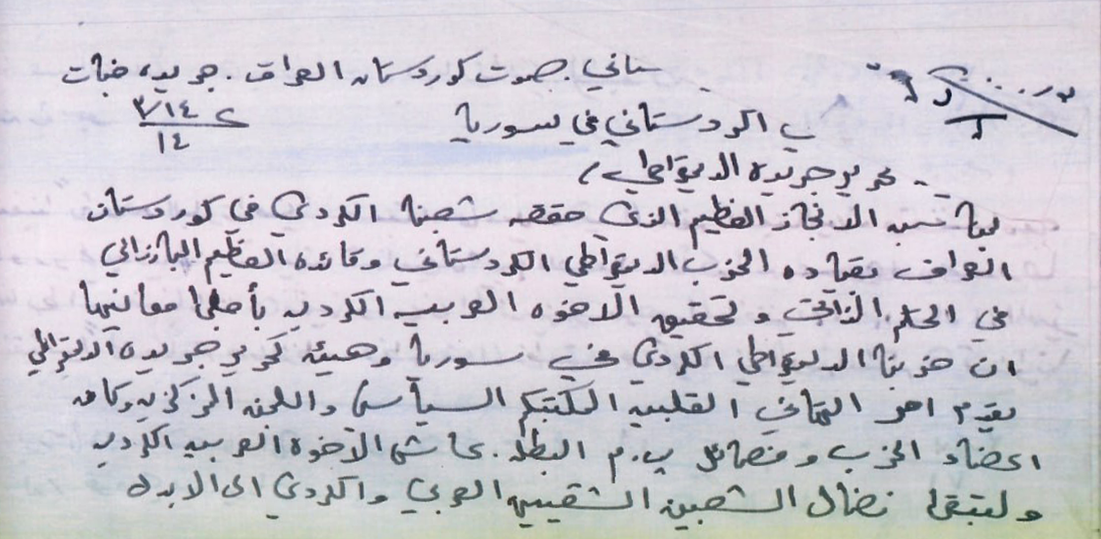 ستاني. صوت كوردستان العراق. جريده خبات
٣/١٤
١٤
ب الكردستاني في سوريا
تحرير جريدة الديمقراطي /
بمناسبه الانجاز العظيم الذي حققه شعبنا الكردي في كوردستان
العراق بقياده الحزب الديمقراطي الكردستاني وقائده العظيم البارزاني
في الحكم الذاتي وتحقيق الاخوه العربيه الكرديه بأجلى معانيها
ان حزبنا الديمقراطي الكردي في سوريا وهيئة تحرير جريدة الديمقراطي
يقدم احر التهاني القلبيه للمكتبكم السياسي واللجنه المركزيه وكافه
اعضاء الحزب وفصائل ب.م البطله. عاشت الاخوة العربيه الكرديه
ولتبقى نضال الشعبين الشقيقين العربي والكردي الى الابد